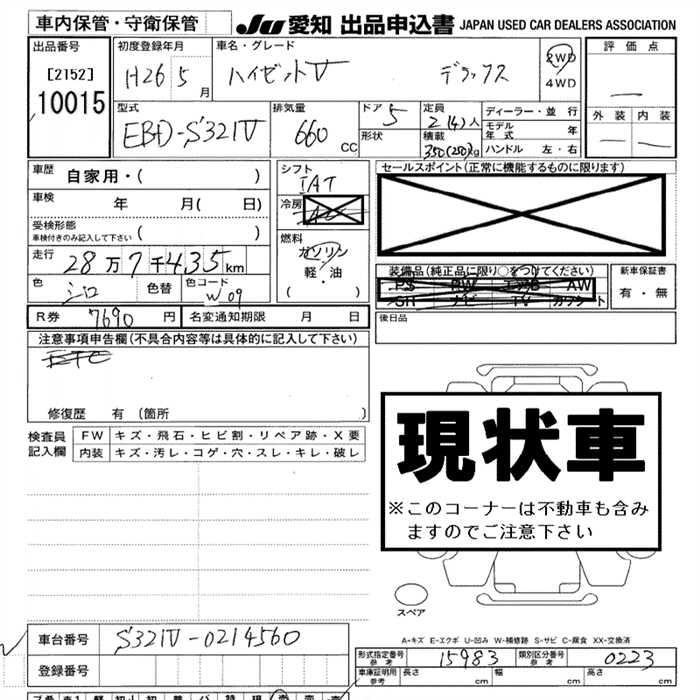 車内保管・守衛保管
JU 愛知 出品申込書 JAPAN USED CAR DEALERS ASSOCIATION
出品番号
[2152]
10015
初度登録年月
H26 5月
車名・グレード
ハイゼットV デラックス
2WD
4WD
評価点
外装 内装
型式
EBD-S321V
排気量
660 CC
ドア 5
形状
定員
2(4)人
積載
350(250)kg
ディーラー・並行
モデル年式 年
ハンドル 左・右
車歴 自家用・( )
車検 年 月( 日)
受検形態
車検付きのみ記入して下さい ( )
走行 28万7千435km
色 シロ 色替 色コード W09
シフト
IAT
冷房
燃料
ガソリン
軽・油
( )
セールスポイント(正常に機能するものに限ります)
装備品(純正品に限り○をつけてください)
PS PW エアB AW
SR ナビ TV カワシート
新車保証書
有・無
後日品
R券 7690円 名変通知期限 月 日
注意事項申告欄(不具合内容等は具体的に記入して下さい)
ETC
修復歴 有 (箇所 )
検査員記入欄
FW キズ・飛石・ヒビ割・リペア跡・X要
内装 キズ・汚レ・コゲ・穴・スレ・キレ・破レ
現状車
※このコーナーは不動車も含み
ますのでご注意下さい
スペア
A-キズ E-エクボ U-凹み W-補修跡 S-サビ C-腐食 XX-交換済
車台番号 S321V-0214560
登録番号
形式指定番号 参考 15983 類別区分番号 参考 0223
車庫証明用 参考 長さ cm 幅 cm 高さ cm